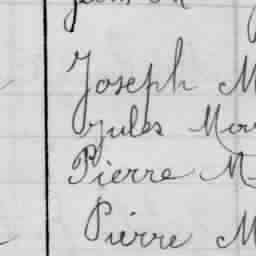 Joseph M
Jules Mor
Pierre M
Pierre M